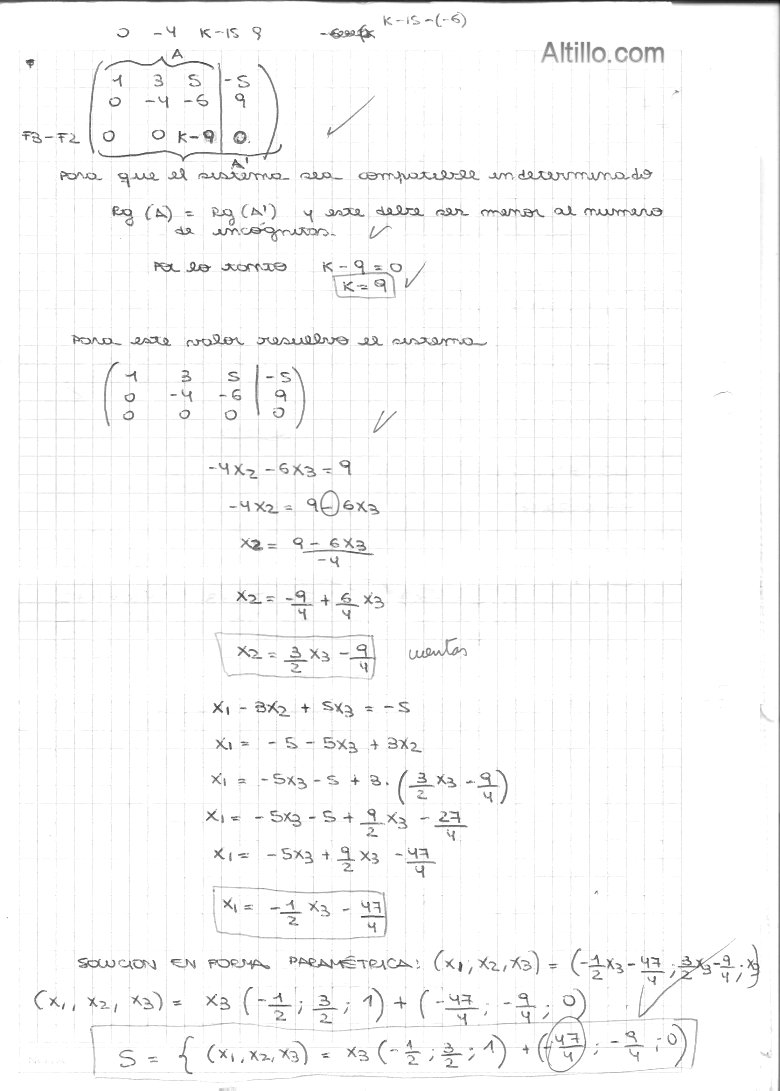 K-15-(-6)
0 -4 K-15 9
Altillo.com
A
1 3 5 | -5
0 -4 -6 | 9
F3-F2 0 0 K-9 | 0
A'
Para que el sistema sea compatible indeterminado
Rg (A) = Rg (A') y este debe ser menor al numero
de incógnitas.
Por lo tanto K-9=0
K=9
Para este valor resuelvo el sistema
1 3 5 | -5
0 -4 -6 | 9
0 0 0 | 0
-4x2 - 6x3 = 9
-4x2 = 9 - 6x3
x2 = (9 - 6x3)/-4
x2 = -9/4 + 6/4 x3
x2 = 3/2 x3 - 9/4 cuentas
x1 - 3x2 + 5x3 = -5
x1 = -5 - 5x3 + 3x2
x1 = -5x3 - 5 + 3. (3/2 x3 - 9/4)
x1 = -5x3 - 5 + 9/2 x3 - 27/4
x1 = -5x3 + 9/2 x3 - 47/4
x1 = -1/2 x3 - 47/4
SOLUCION EN FORMA PARAMÉTRICA: (x1, x2, x3) = (-1/2 x3 - 47/4; 3/2 x3 - 9/4; x3)
(x1, x2, x3) = x3 (-1/2; 3/2; 1) + (-47/4; -9/4; 0)
S = { (x1, x2, x3) = x3 (-1/2; 3/2; 1) + (-47/4; -9/4; 0)